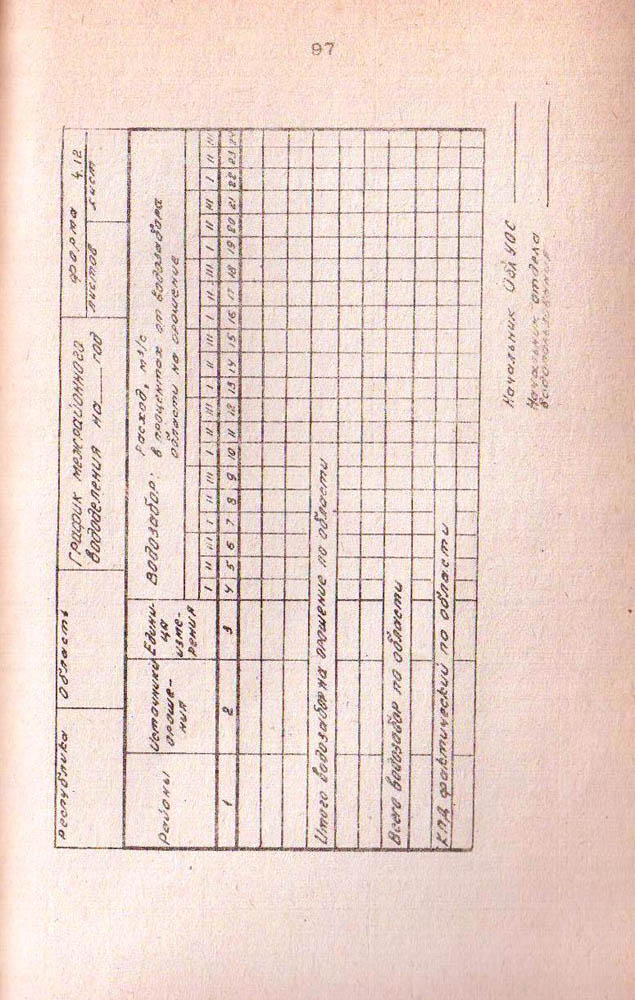 97
Республика
Область
График межрайонного
вододеления на___год
форма 4.12
листов лист
Районы
Источники
ороше-
ния
Едини-
ца
изме-
рения
Водозабор:
расход, м³/с
в процентах от водозабора
области на орошение
I II III I II III I II III I II III I II III I II III I II III
1 2 3 4 5 6 7 8 9 10 11 12 13 14 15 16 17 18 19 20 21 22 23 24
Итого водозабор на орошение по области
Всего водозабор по области
КПД фактический по области
Начальник ОблУОС
Начальник отдела
водопользования